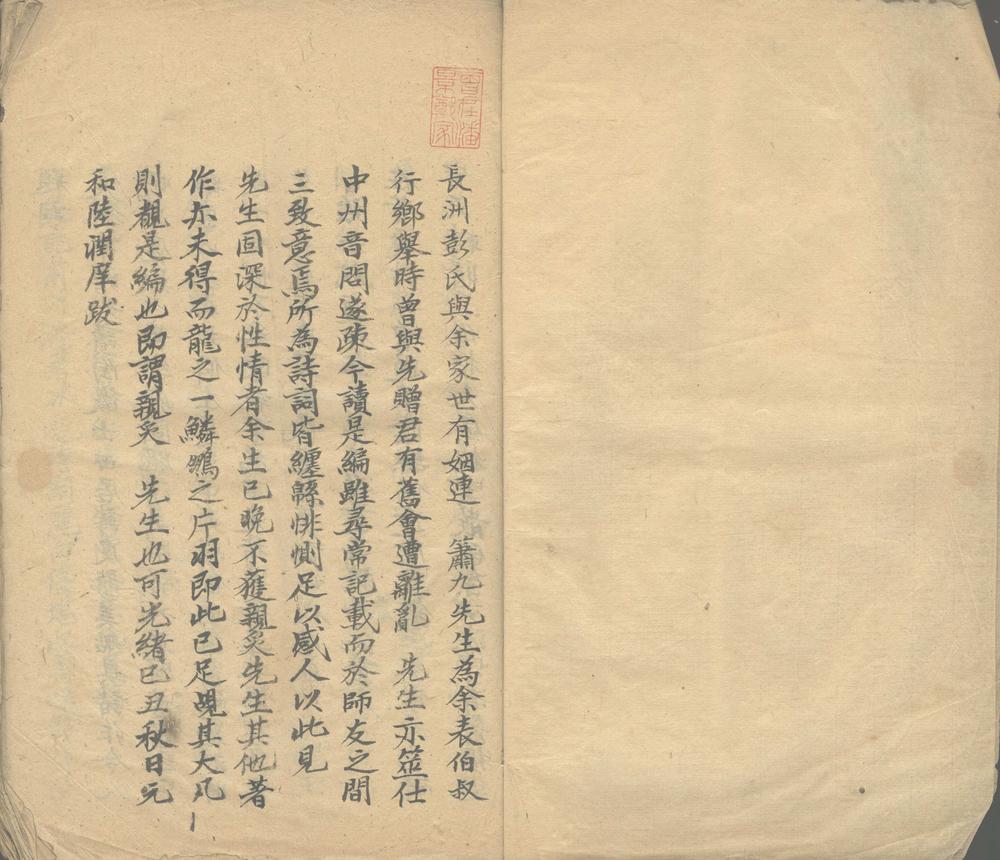 長洲彭氏與余家世有姻連 簫九先生為余表伯叔
行鄉舉時曾與先贈君有舊會遭離亂 先生亦筮仕
中州音問遂疎今讀是編雖尋常記載而於師友之間
三致意焉所為詩詞皆纏緜悱惻足以感人以此見
先生固深於性情者余生已晚不獲親炙先生其他著
作亦未得而龍之一鱗鵬之片羽即此已足覘其大凡
則覩是編也即謂親炙 先生也可光緒己丑秋日元
和陸潤庠跋
曾在潘
景鄭家